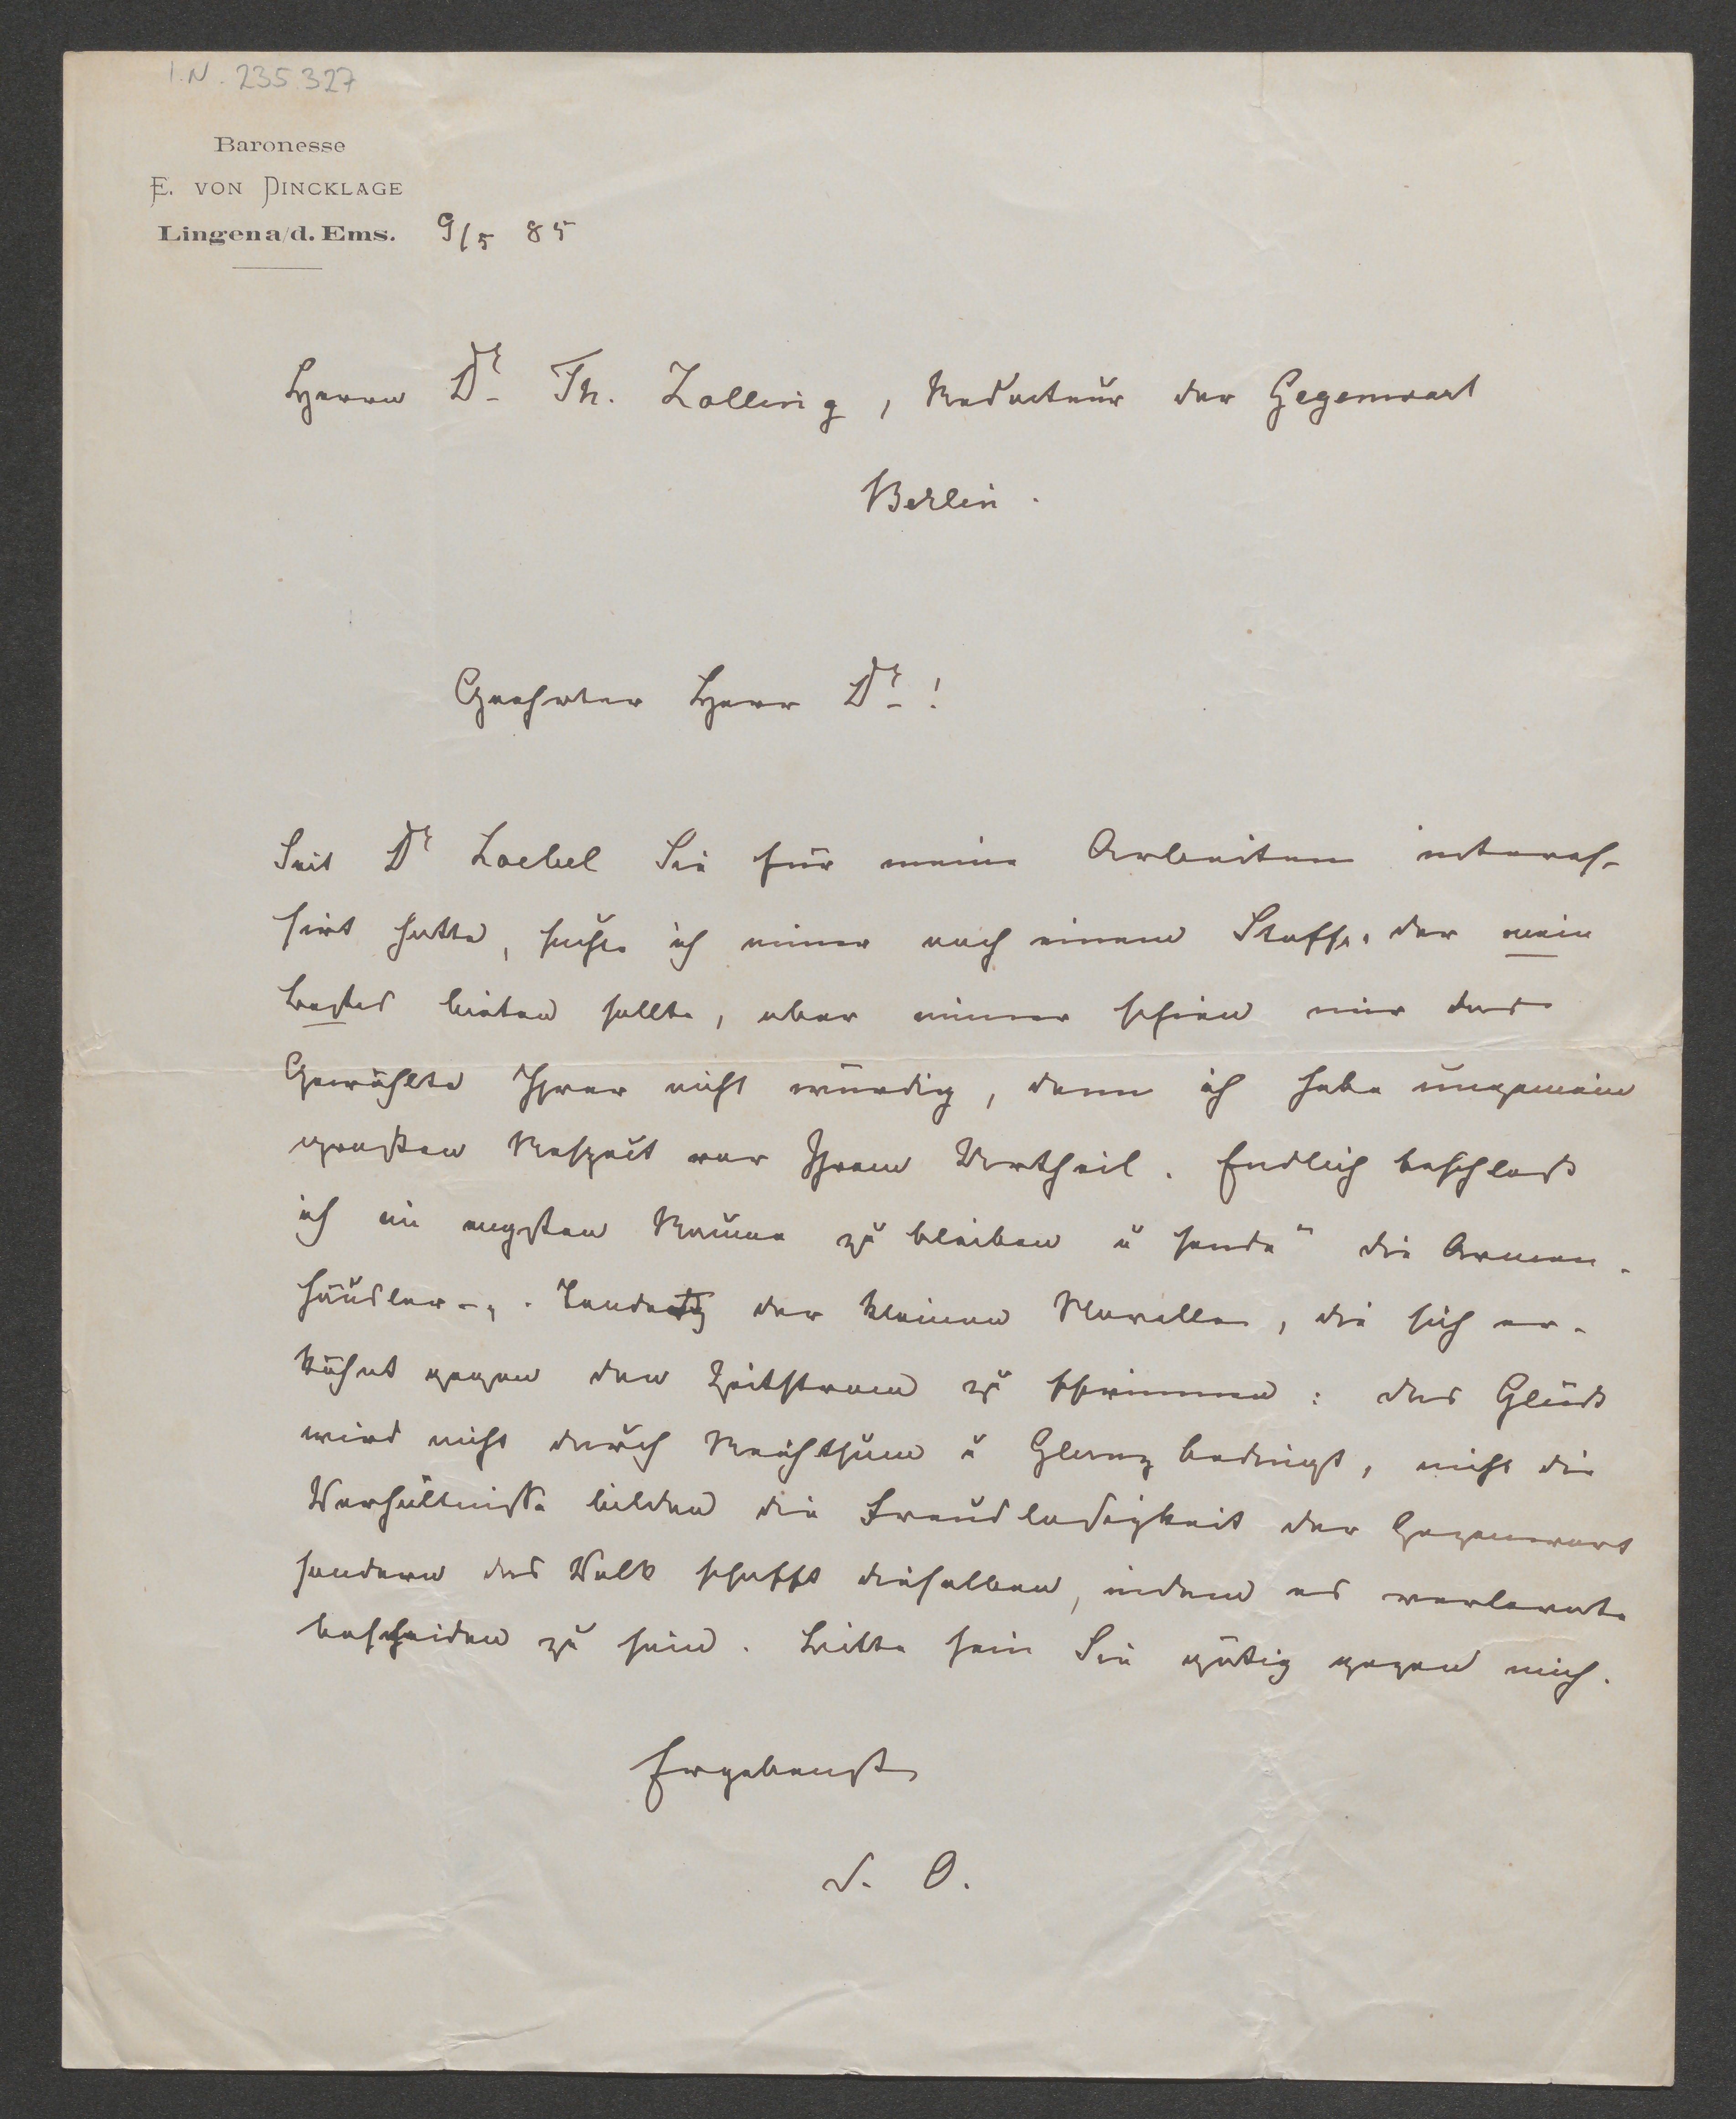 I.N. 235.327
Baronesse
E. VON DINCKLAGE
Lingen a/d. Ems. 9/5 85
Herrn Dr. Th. Zolling, Redacteur der Gegenwart
Berlin.
Geehrter Herr Dr.!
Seit Dr Loebel Sie für meine Arbeiten interes-
sirt hatte, suchte ich immer nach einem Stoffe, der mein
bestes bieten sollte, aber immer schien mir das
Gewählte Ihrer nicht würdig, denn ich habe ungemein
großen Respect vor Ihrem Urtheil. Endlich beschloß
ich im engsten Raume zu bleiben u sende "die Armen-
häusler-". Tendenz der kleinen Novelle, die sich er-
kühnt gegen den Zeitstrom zu schwimmen: das Glück
wird nicht durch Reichthum u Glanz bedingt, nicht die
Verhältnisse bilden die Freudlosigkeit der Gegenwart
sondern das Volk schafft dieselben, indem es verlernte
bescheiden zu sein. Bitte sein Sie gütig gegen mich.
Ergebenst
d. O.